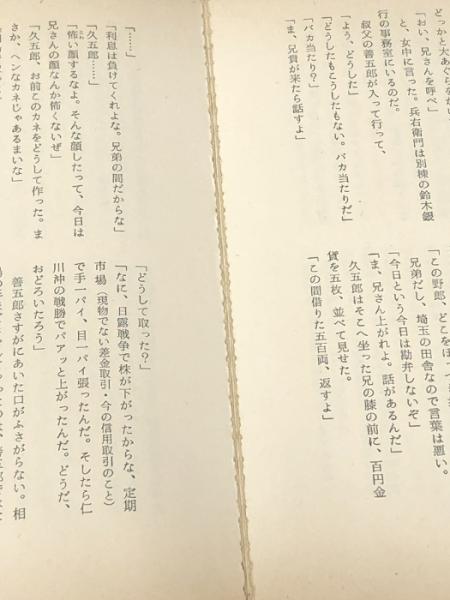 どっかと大あぐらをかい
「おい、兄さんを呼べ」
と、女中に言った。兵右衛門は別棟の鈴木銀
行の事務室にいるのだ。
叔父の善五郎が入って行って、
「よう、どうした」
「どうしたもこうしたもない。バカ当たりだ」
「バカ当たり？」
「ま、兄貴が来たら話すよ」
「この野郎、どこをほ
兄弟だし、埼玉の田舎なので言葉は悪い。
「今日という今日は勘弁しないぞ」
「ま、兄さん上がれよ。話があるんだ」
久五郎はそこへ坐った兄の膝の前に、百円金
貨を五枚、並べて見せた。
「この間借りた五百両、返すよ」
「……」
「利息は負けてくれよな。兄弟の間だからな」
「久五郎……」
「怖い顔するなよ。そんな顔したって、今日は
兄さんの顔なんか怖くないぜ」
「久五郎、お前このカネをどうして作った。ま
さか、ヘンなカネじゃあるまいな」
「どうして取った？」
「なに、日露戦争で株が下がったからな、定期
市場（現物でない差金取引・今の信用取引のこと）
で手一パイ、目一パイ張ったんだ。そしたら仁
川沖の戦勝でパアッと上がったんだ。どうだ、
おどろいたろう」
善五郎さすがにあいた口がふさがらない。相